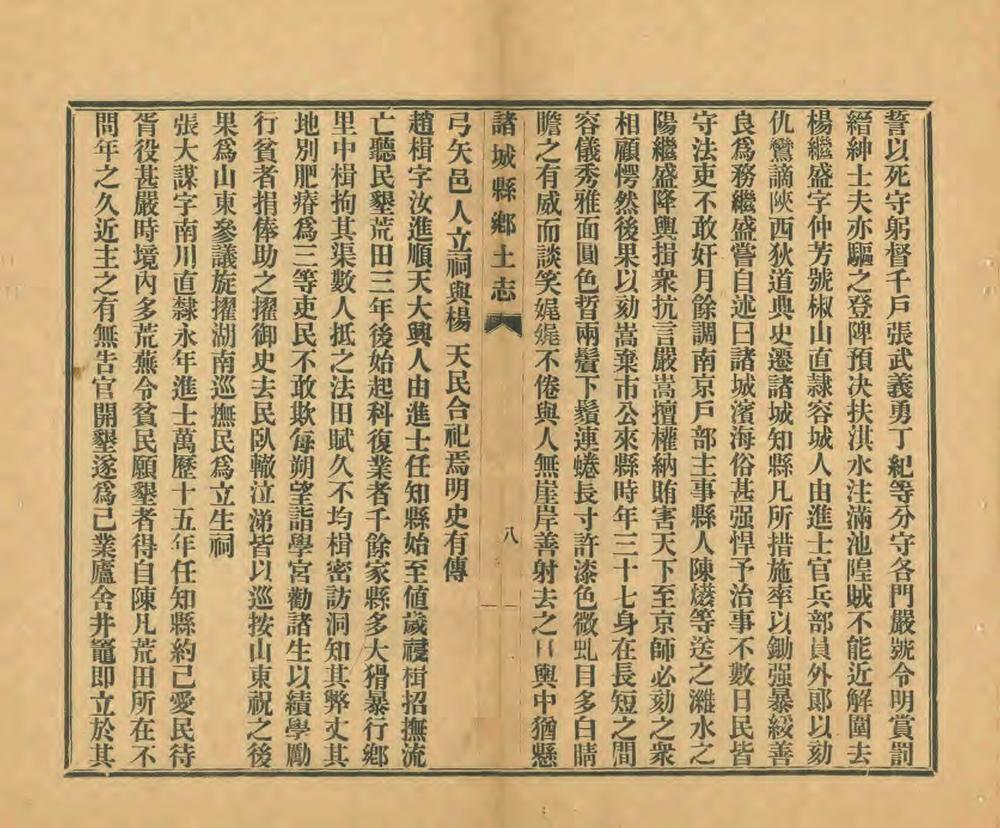 誓以死守躬督千戶張武義勇丁 紀等分守各門嚴號令明賞罰
縉紳士夫亦驅之登陴預決扶淇水注滿池隍賊不能近解圍去
楊繼盛字仲芳號椒山直隸容城人由進士官兵部員外郎以劾
仇鸞謫陝西狄道典史遷諸城知縣凡所措施率以鋤强暴綏善
良爲務繼盛嘗自述曰諸城濱海俗甚强悍予治事不數日民皆
守法吏不敢奸月餘調南京戶部主事縣人陳爕等送之濰水之
陽繼盛降輿揖衆抗言嚴嵩擅權納賄害天下至京師必劾之衆
相顧愕然後果以劾嵩棄市公來縣時年三十七身在長短之間
容儀秀雅面圓色晳兩鬢下鬚連蜷長寸許漆色微虬目多白睛
瞻之有威而談笑娓娓不倦與人無崖岸善射去之日輿中猶懸
諸城縣鄉土志 八
弓矢邑人立祠與楊 天民合祀焉明史有傳
趙楫字汝進順天大興人由進士任知縣始至値歲祲楫招撫流
亡聽民墾荒田三年後始起科復業者千餘家縣多大猾暴行鄉
里中楫拘其渠數人抵之法田賦久不均楫密訪洞知其弊丈其
地別肥瘠爲三等吏民不敢欺每朔望詣學宮勸諸生以績學勵
行貧者捐俸助之擢御史去民臥轍泣涕皆以巡按山東祝之後
果爲山東參議旋擢湖南巡撫民爲立生祠
張大謀字南川直隸永年進士萬歷十五年任知縣約己愛民待
胥役甚嚴時境內多荒蕪令貧民願墾者得自陳凡荒田所在不
問年之久近主之有無吿官開墾遂爲己業廬舍井竈即立於其